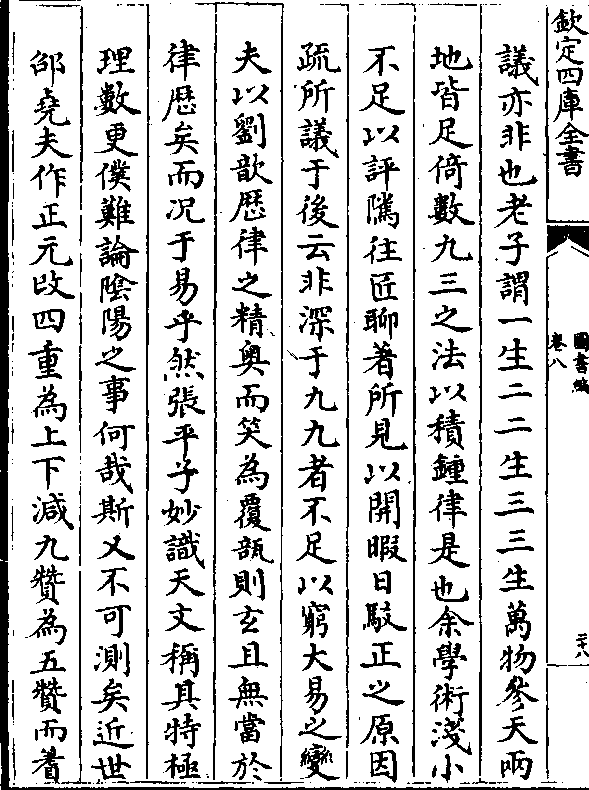 欽定四庫全書
圖書編
卷八
二十八
議亦非也老子謂一生二二生三三生萬物參天兩
地皆足倚數九三之法以積鍾律是也余學術淺小
不足以評隲往匠聊著所見以開暇日駁正之原因
疏所議于後云非深于九九者不足以窮大易之變
夫以劉歆歴律之精奥而笑為覆瓿則玄且無當於
律歴矣而况于易乎然張平子妙識天文稱其特極
理數更僕難論隂陽之事何哉斯又不可測矣近世
邵堯夫作正元改四重為上下减九贊為五贊而蓍